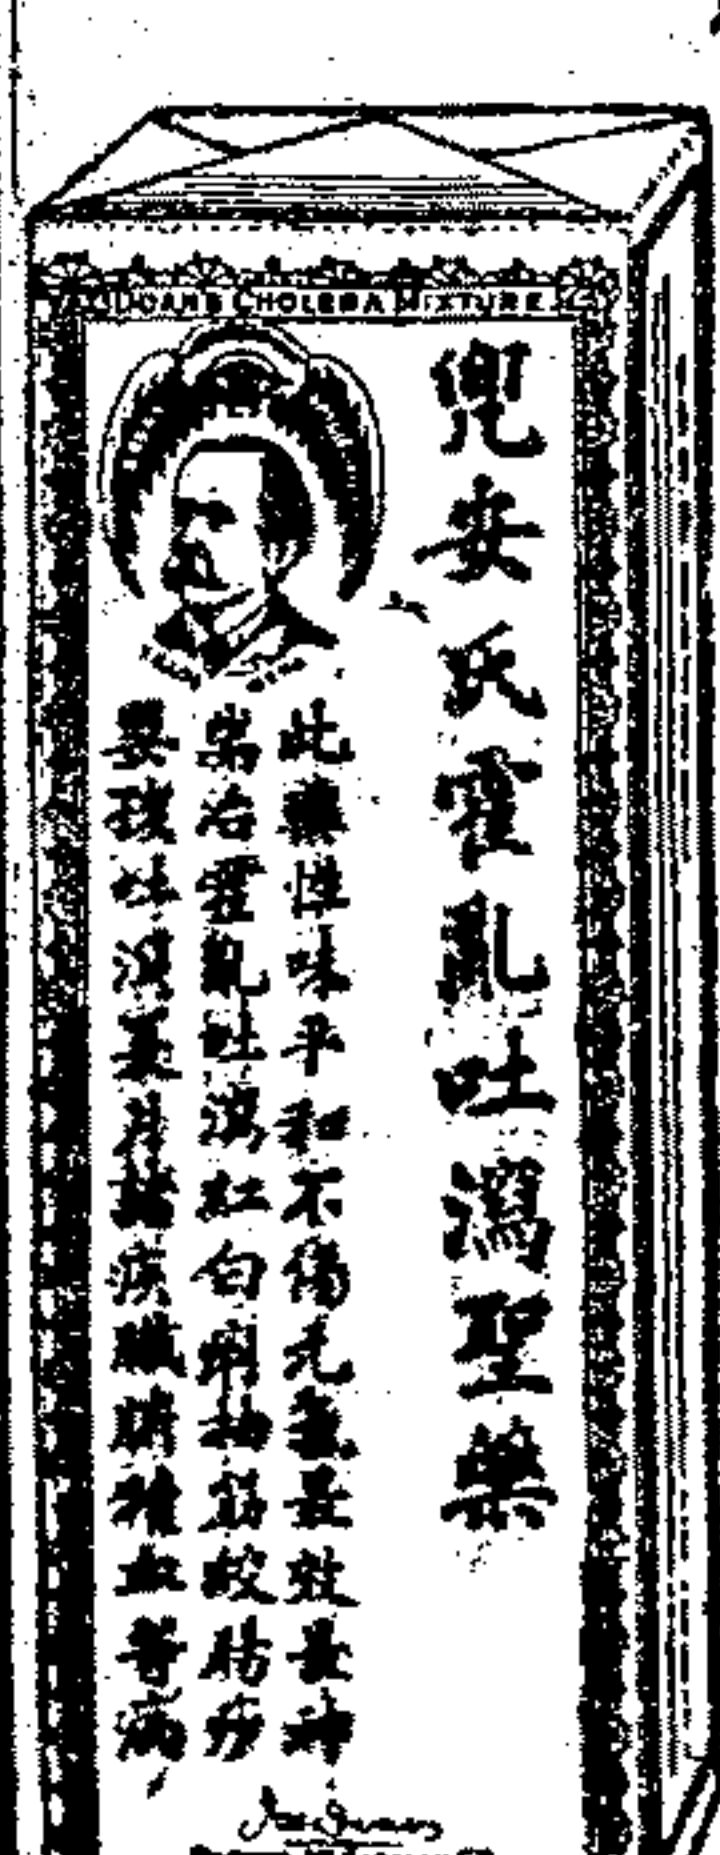 DOANS CHOLERA MIXTURE
兜安氏霍亂吐瀉聖藥
此藥性味平和不傷元氣最效最神
耑治霍亂吐瀉紅白痢抽筋絞腸痧
嬰孩吐瀉夏月諸疾臟腑積血等病